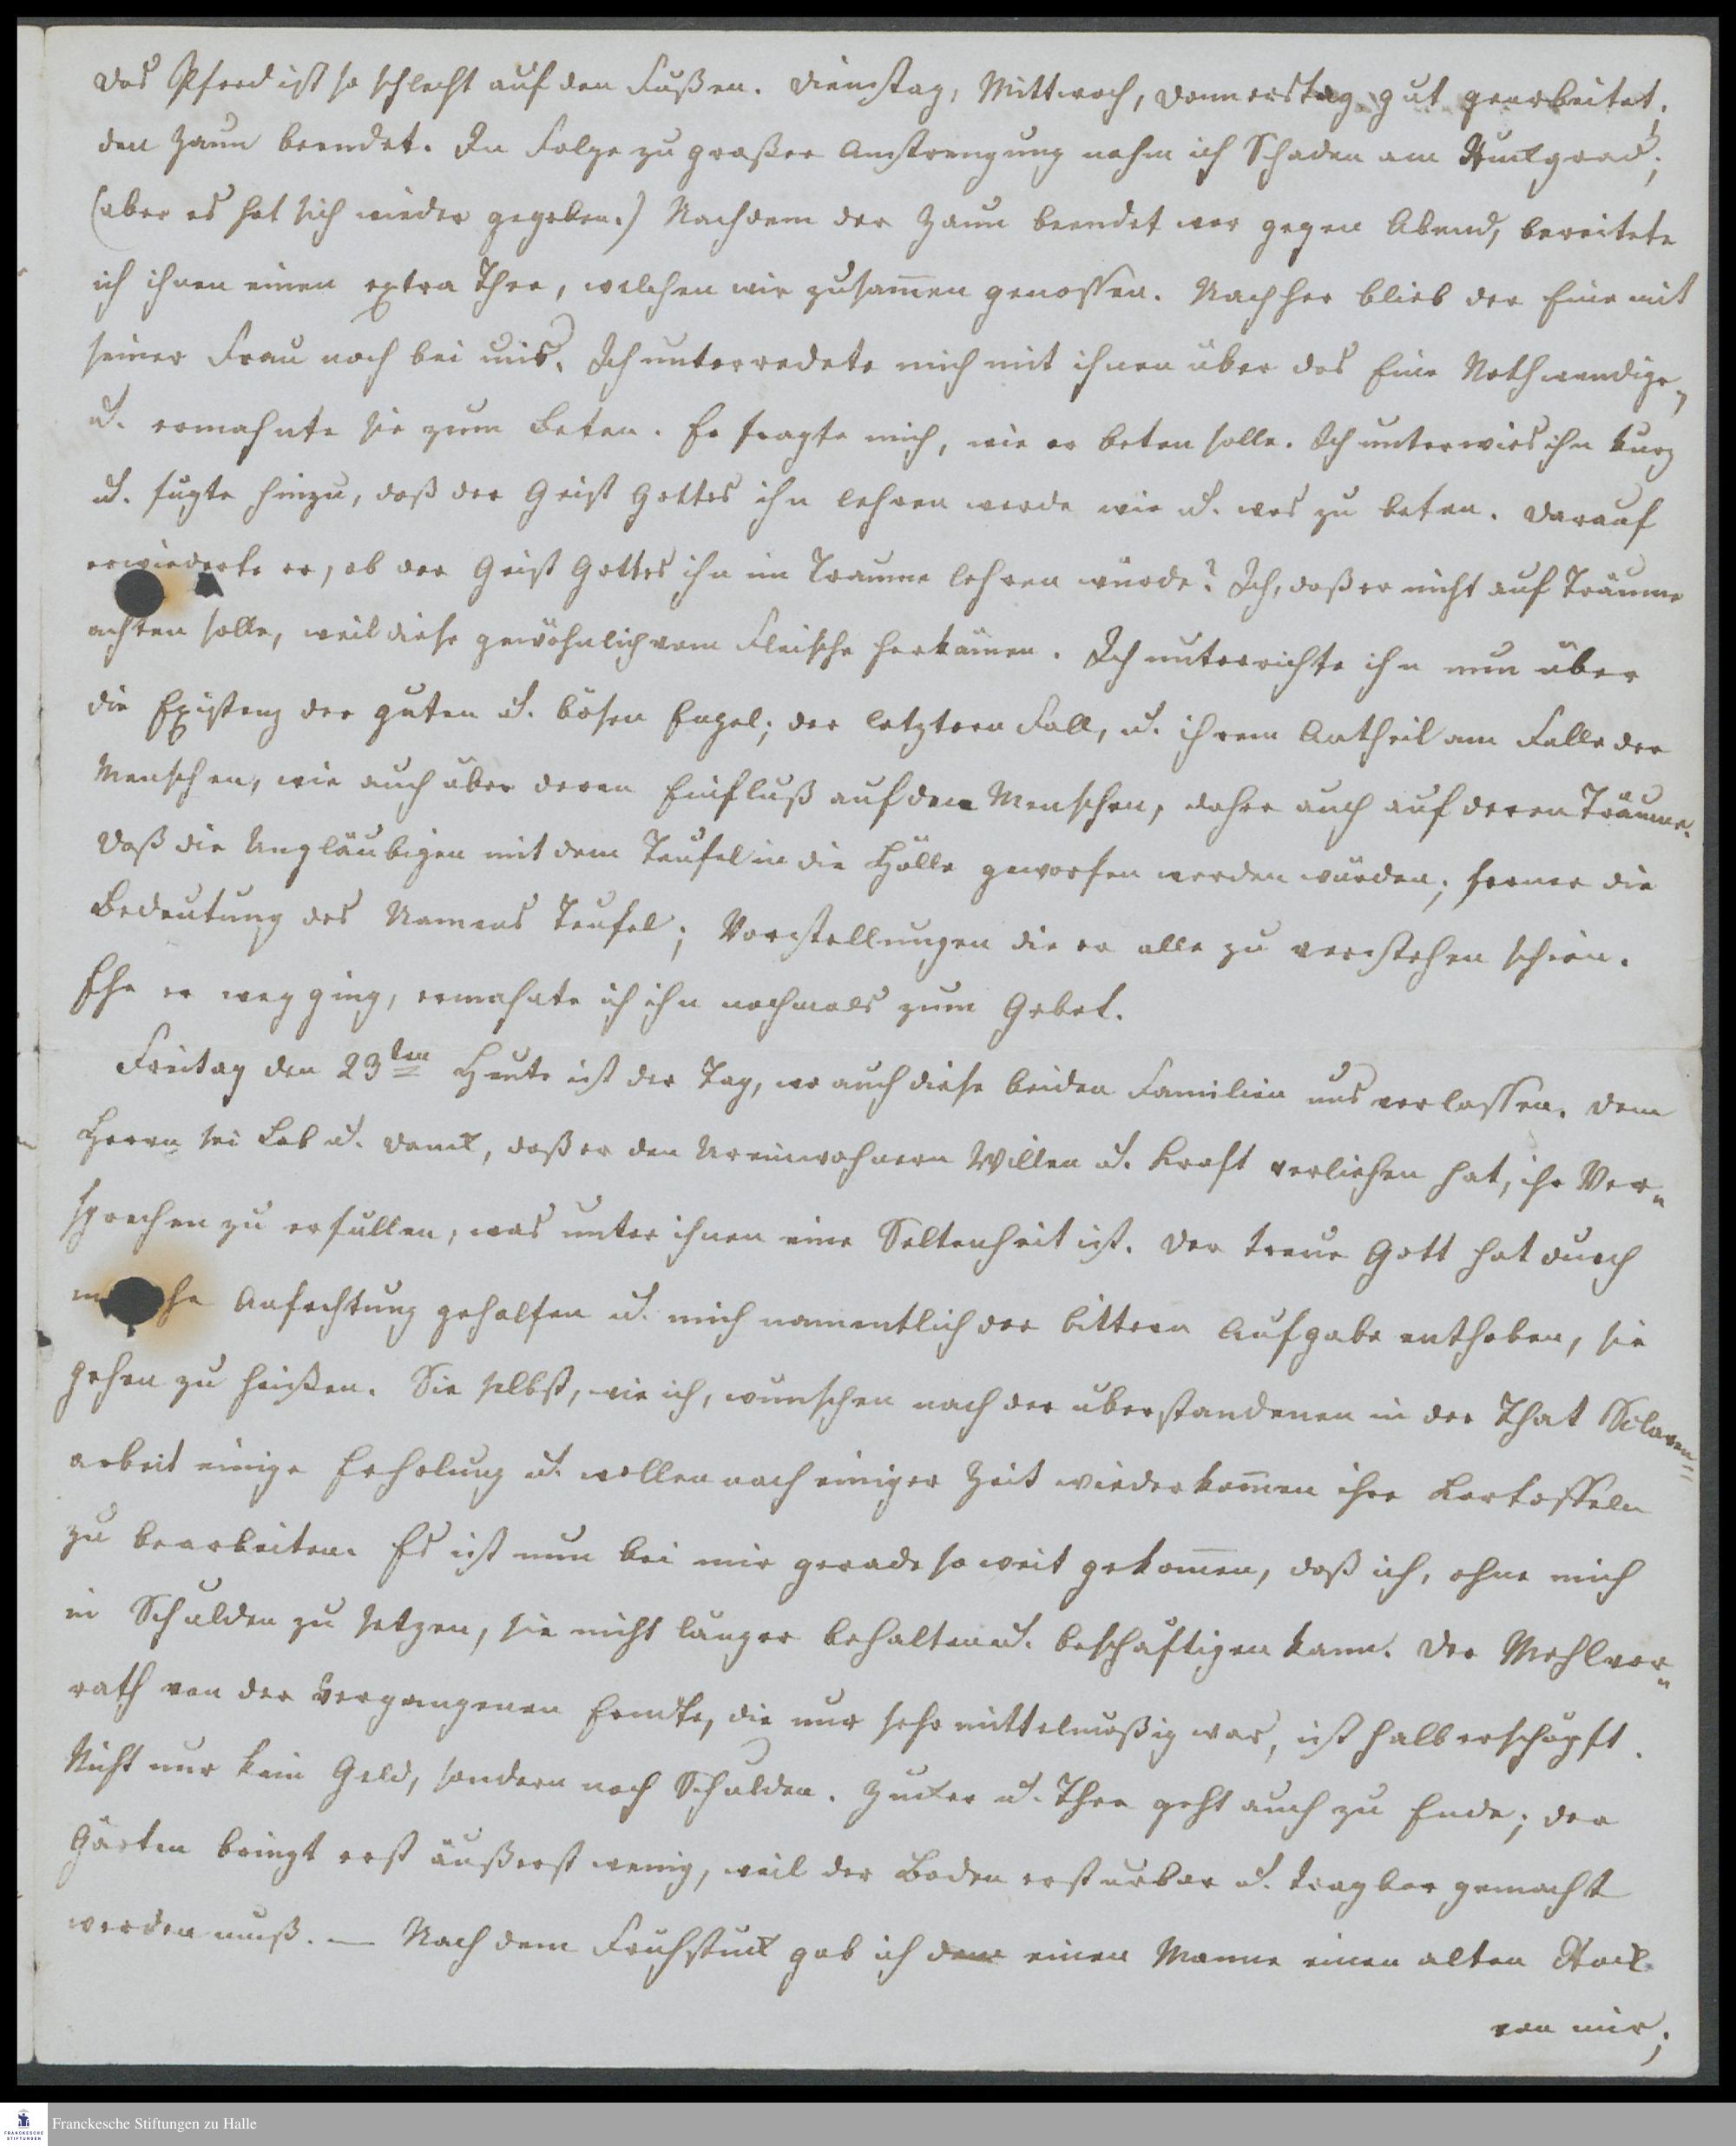 das Pferd ist so schlecht auf den Fußen. Dienstag, Mittwoch, Donnerstag gut gearbeitet;
den Zaun beendet. In Folge zu großer Anstrengung nahm ich Schaden am Rückgrad;
(aber es hat sich wieder gegeben.) Nachdem der Zaun beendet war gegen Abend, bereitete
ich ihnen einen extra Thee, welchen wir zusam̅en genossen. Nachher blieb der Eine mit
seiner Frau noch bei uns. Ich unterredete mich mit ihnen über das Eine Nothwendige,
u. ermahnte sie zum Beten. Er fragte mich, wie er beten solle. Ich unterwies ihn kurz
u. fügte hinzu, daß der Geist Gottes ihn lehren werde wie u. was zu beten. Darauf
erwiederte er, ob der Geist Gottes ihn im Traume lehren würde? Ich, daß er nicht auf Träume
achten solle, weil diese gewöhnlich vom Fleische herkämen. Ich unterrichte ihn nun über
die Existenz der guten u. bösen Engel; der letztern Fall, u. ihrem Antheil am Falle der
Menschen, wie auch über deren Einfluß auf den Menschen, daher auch auf deren Träume.
Daß die Ungläubigen mit dem Teufel in die Hölle geworfen werden würden; ferner die
Bedeutung des Namens Teufel; Vorstellungen die er alle zu verstehen schien.
Ehe er weg ging, ermahnte ich ihn nochmals zum Gebet.
Freitag den 23ten Heute ist der Tag, wo auch diese beiden Familien uns verlassen. Dem
Herrn sei Lob u. Dank, daß er den Ureinwohnern Willen u. Kraft verliehen hat, ihr Ver-
sprechen zu erfüllen, was unter ihnen eine Seltenheit ist. Der treue Gott hat durch
m he Anfechtung geholfen u. mich namentlich der bittern Aufgabe enthoben, sie
gehen zu heißen. Sie selbst, wie ich, wünschen nach der überstandenen in der That Sclaven-
arbeit einige Erholung u. wollen nach einiger Zeit wiederkom̅en ihre Kartoffeln
zu bearbeiten. Es ist nun bei mir gerade so weit gekom̅en, daß ich, ohne mich
in Schulden zu setzen, sie nicht länger behalten u. beschäftigen kann. Der Mehlvor-
rath von der vergangenen Erndte, die nur sehr mittelmäßig war, ist halb erschöpft.
Nicht nur kein Geld, sondern noch Schulden. Zucker u. Thee geht auch zu Ende; der
Garten bringt erst äußerst wenig, weil der Boden erst urbar u. tragbar gemacht
werden muß. — Nach dem Frühstück gab ich dem einen Manne einen alten Rock
von mir;
Franckesche Stiftungen zu Halle
FRANCKESCHE
STIFTUNGEN